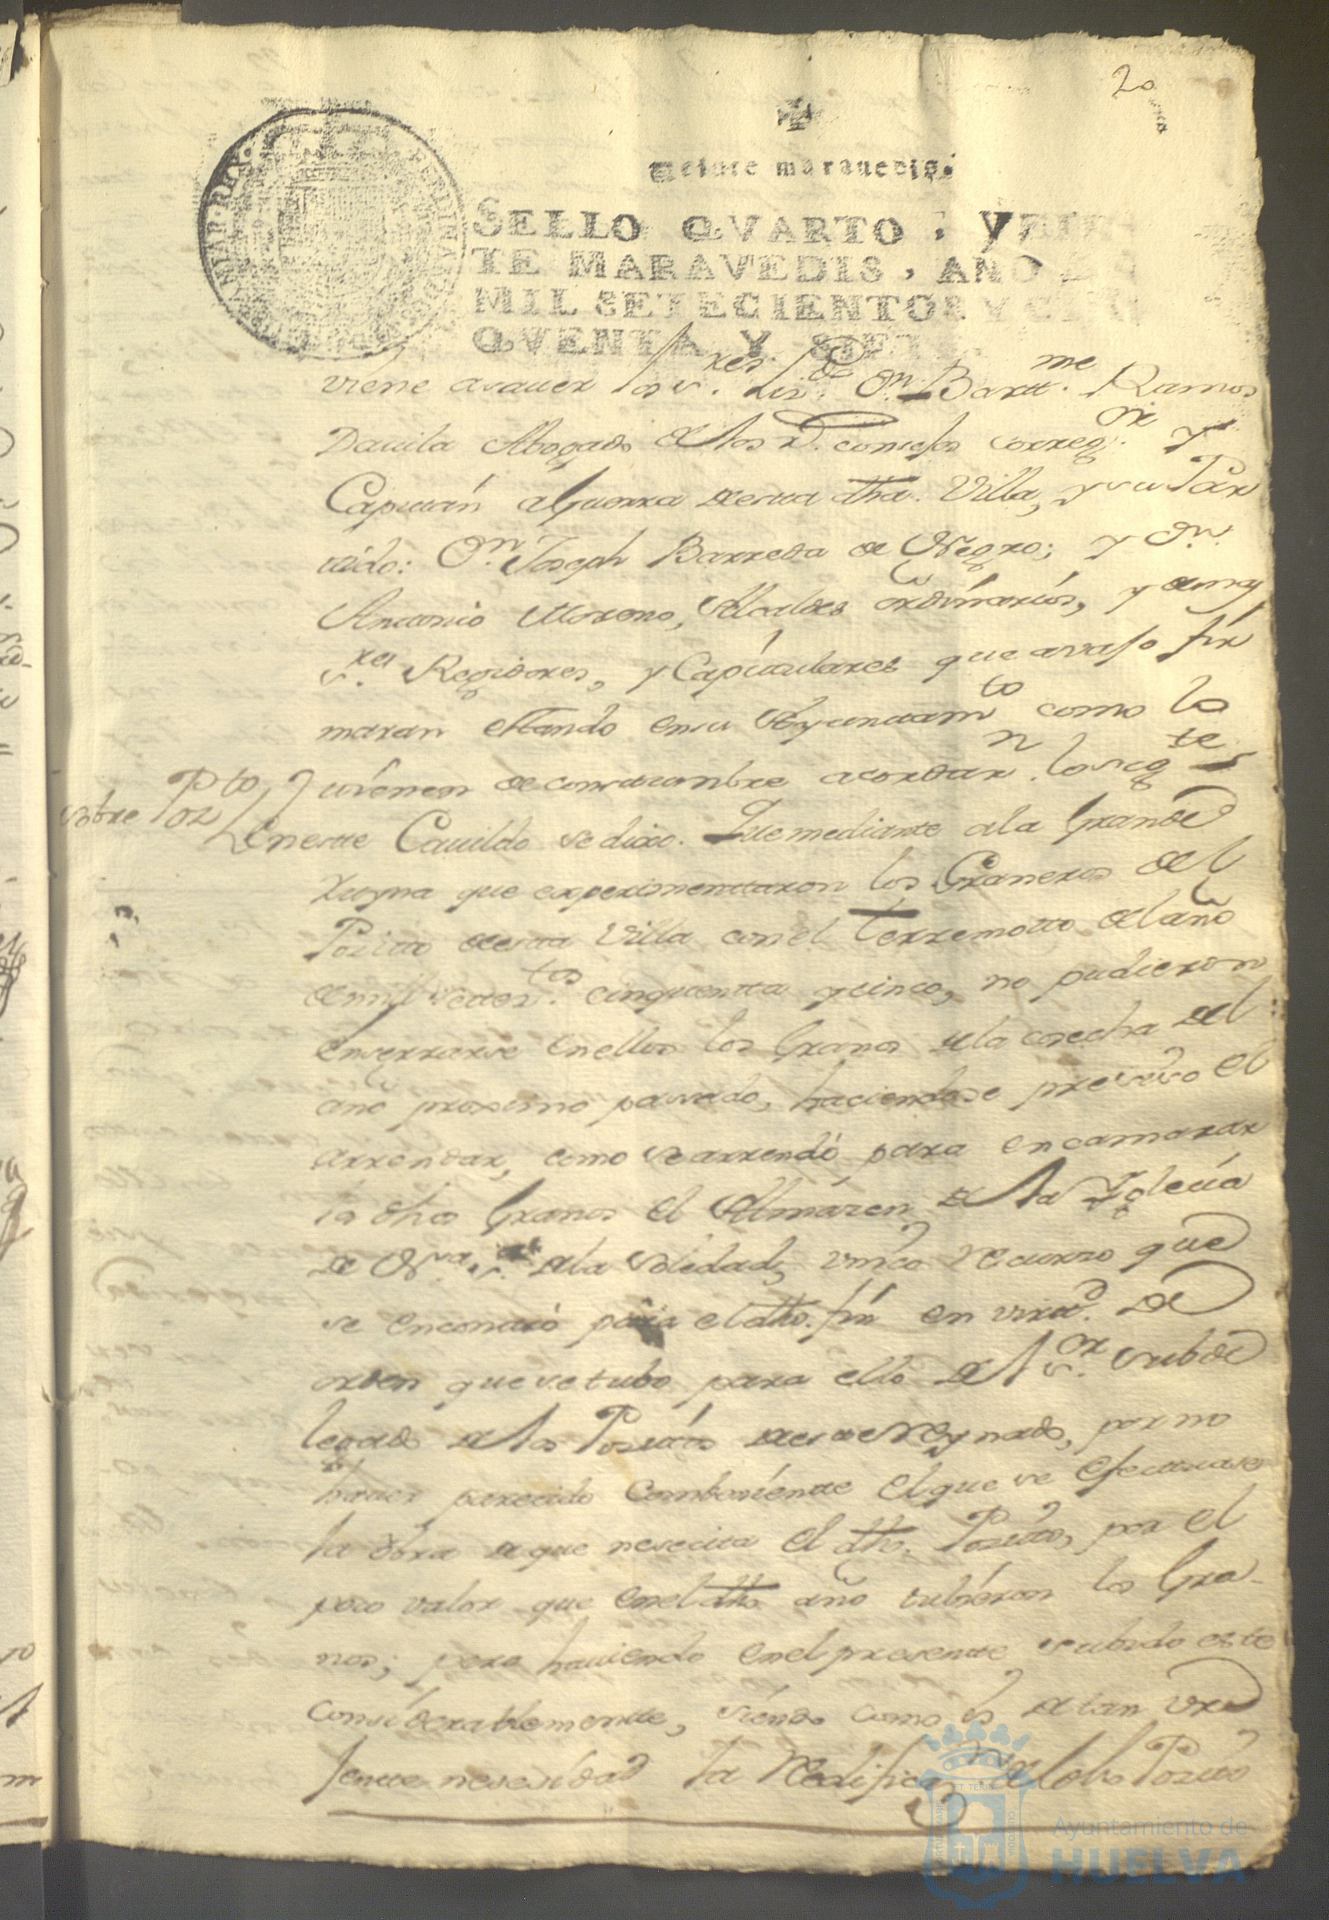 20
Veinte maravedis.
SELLO QVARTO, VEIN
TE MARAVEDIS, AÑO DE
MIL SETECIENTOS Y CIN
QVENTA Y SIETE
viene a saver los s.res Lis.do Dn. Bartt.me Ramos
Davila Abogado de los R.s consejos correg.or y
Capitán a Guerra de esta dha. Villa, y su Par
tido: Dn. Joseph Barreda de Negro; y Dn.
Antonio Moreno, Alcaldes ordinarios, y demas
s.res Regidores, y Capitulares que avajo fir
maran estando en su Ayuntam.to como lo
tienen de constumbre acordar.n lo sig.te
sobre Pto
Poz
En este Cavildo se dixo. Que mediante a la Grande
Ruyna que experimentaron los Graneros del
Pozitto de esta Villa con el Terremotto del año
de mil setez.tos cinquentta y cinco, no pudieron
enserrarse en ellos los Granos de la cosecha del
año proximo pasado, haciendose presiso el
arrendar, como se arrendó para encamarar
los dhos Granos el Almázen de la Yglecia
de N.ra S.ra de la Soledad, vnico recurzo que
se encontró para el dho. fin en virtd. de
orden que se tubo para ello del s.or subde
legado de los Pozitos de este Reynado, por no
haver parecido combeniente el que se efectuase
la obra de que nesecita el dho. Pozito, por el
poco valor que en el dho año tubieron los Gra-
nos; pero haviendo en el presente subido este
considerablemente, siendo como es de tan vr
jente nesesidad la redificaz.n de dho Pozito
ET TERRE
Ayuntamiento de
HUELVA